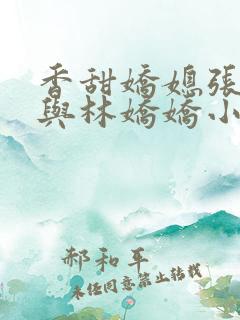 香甜嬌媳張
與林嬌嬌小
郝和平
未经同意禁止转载